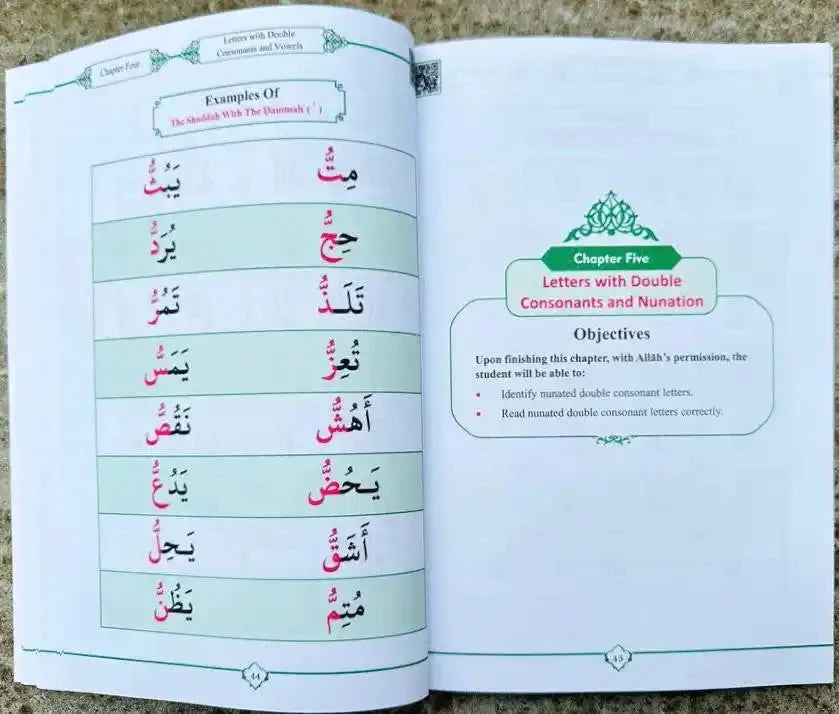 Chapter Four
Letters with Double
Consonants and Vowels
Examples Of
The Shaddah With The Ḍammah ( ُ )
مِتُّ يَبُثُّ
حِجُّ يُرَدُّ
تَلَـذُّ تَمُرُّ
تُعِزُّ يَمَسُّ
أَهُشُّ نَقُصُّ
يَـحُضُّ يَدُعُّ
أَشَقُّ يَـحِلُّ
مُتِمُّ يَظُنُّ
44
Chapter Five
Letters with Double
Consonants and Nunation
Objectives
Upon finishing this chapter, with Allāh's permission, the
student will be able to:
• Identify nunated double consonant letters.
• Read nunated double consonant letters correctly.
45